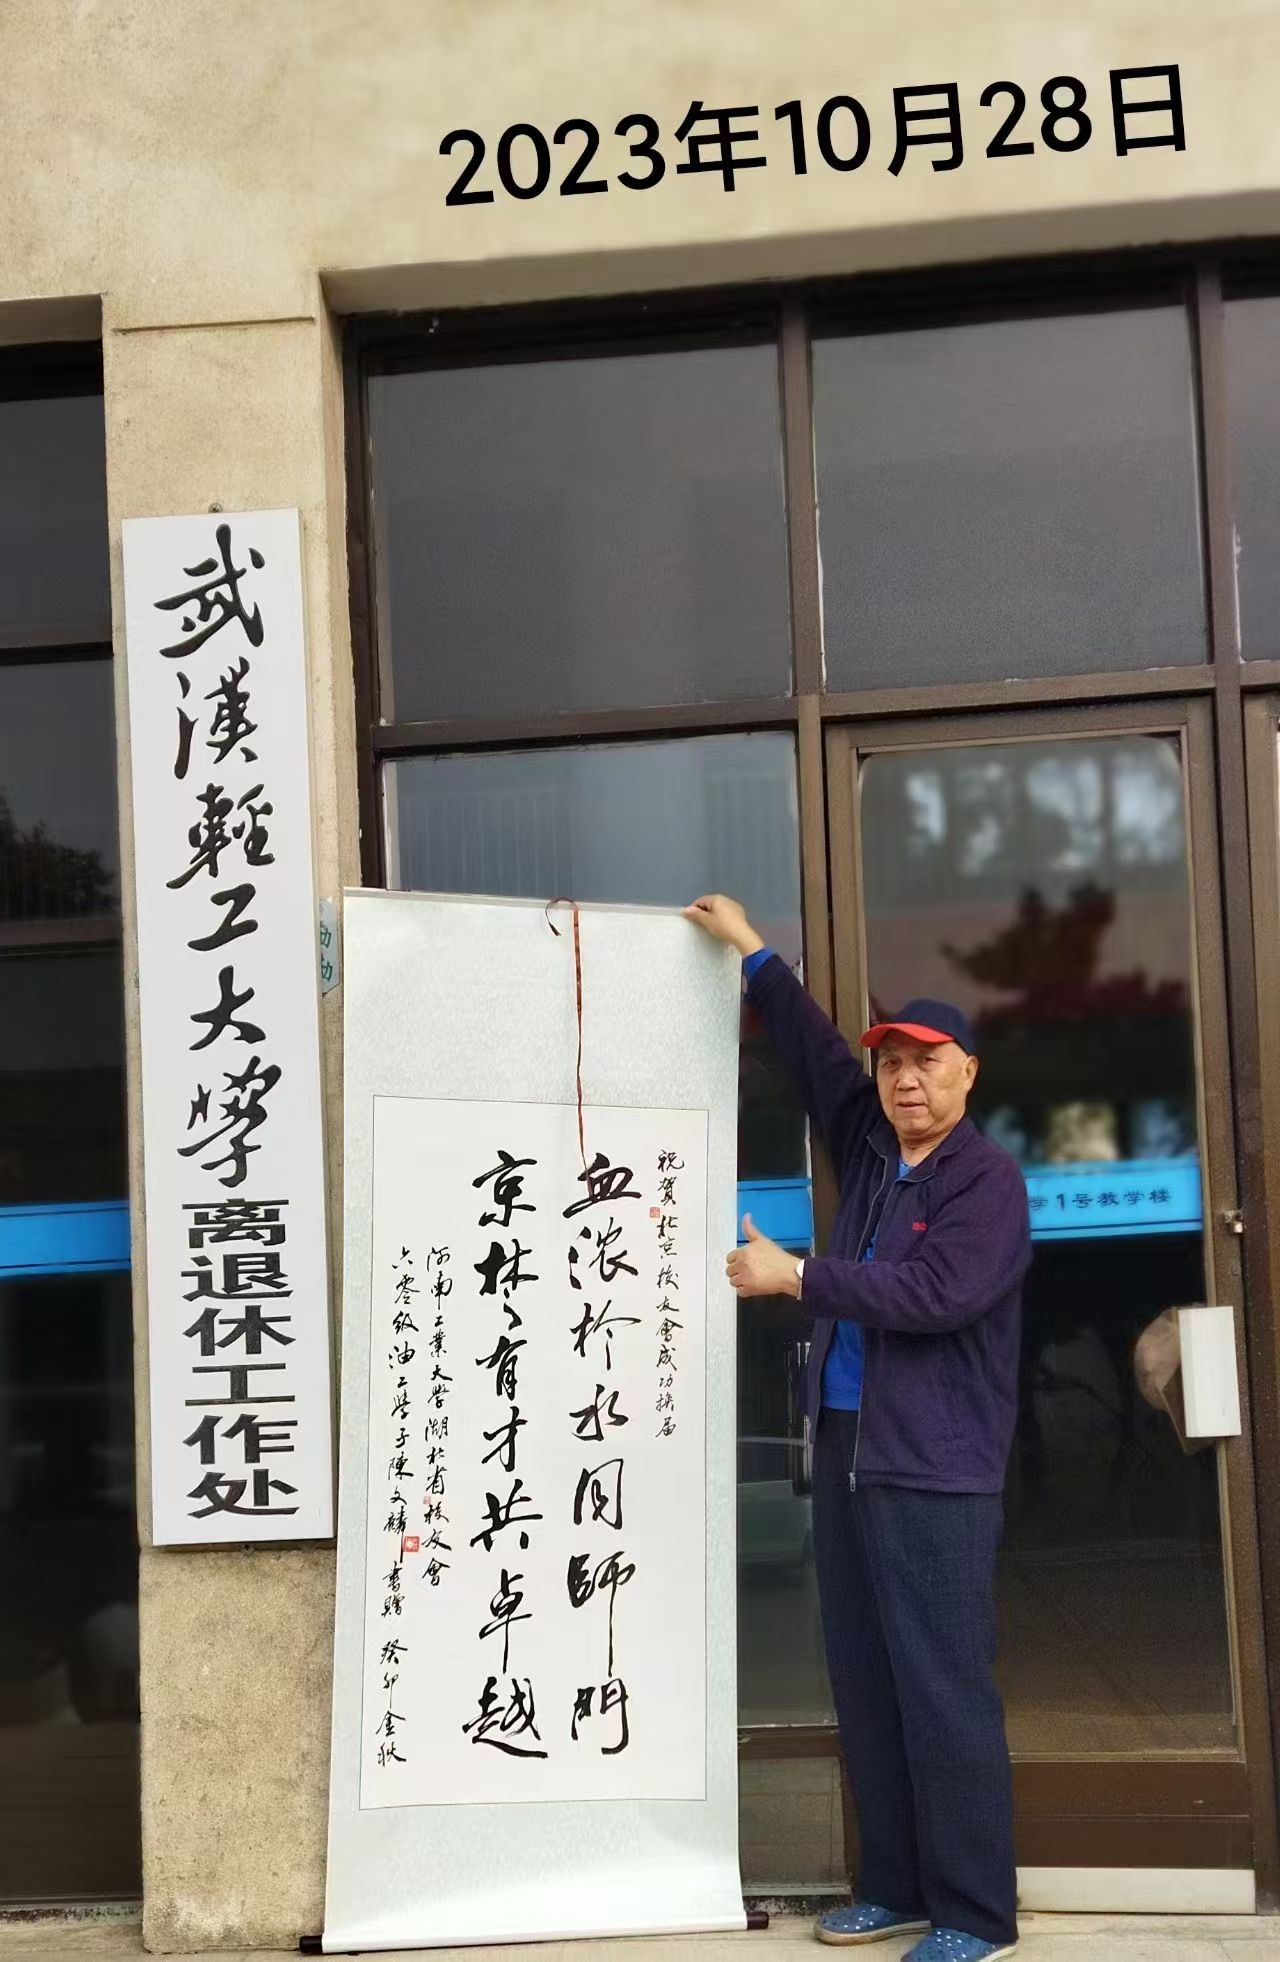 2023年10月28日
武漢輕工大學离退休工作处
祝賀北京校友會成功换届
血浓於水同師門
京楚有才共卓越
河南工業大學湖北省校友會
六零级油工學子陳文麟書贈 癸卯金秋
学1号教学楼